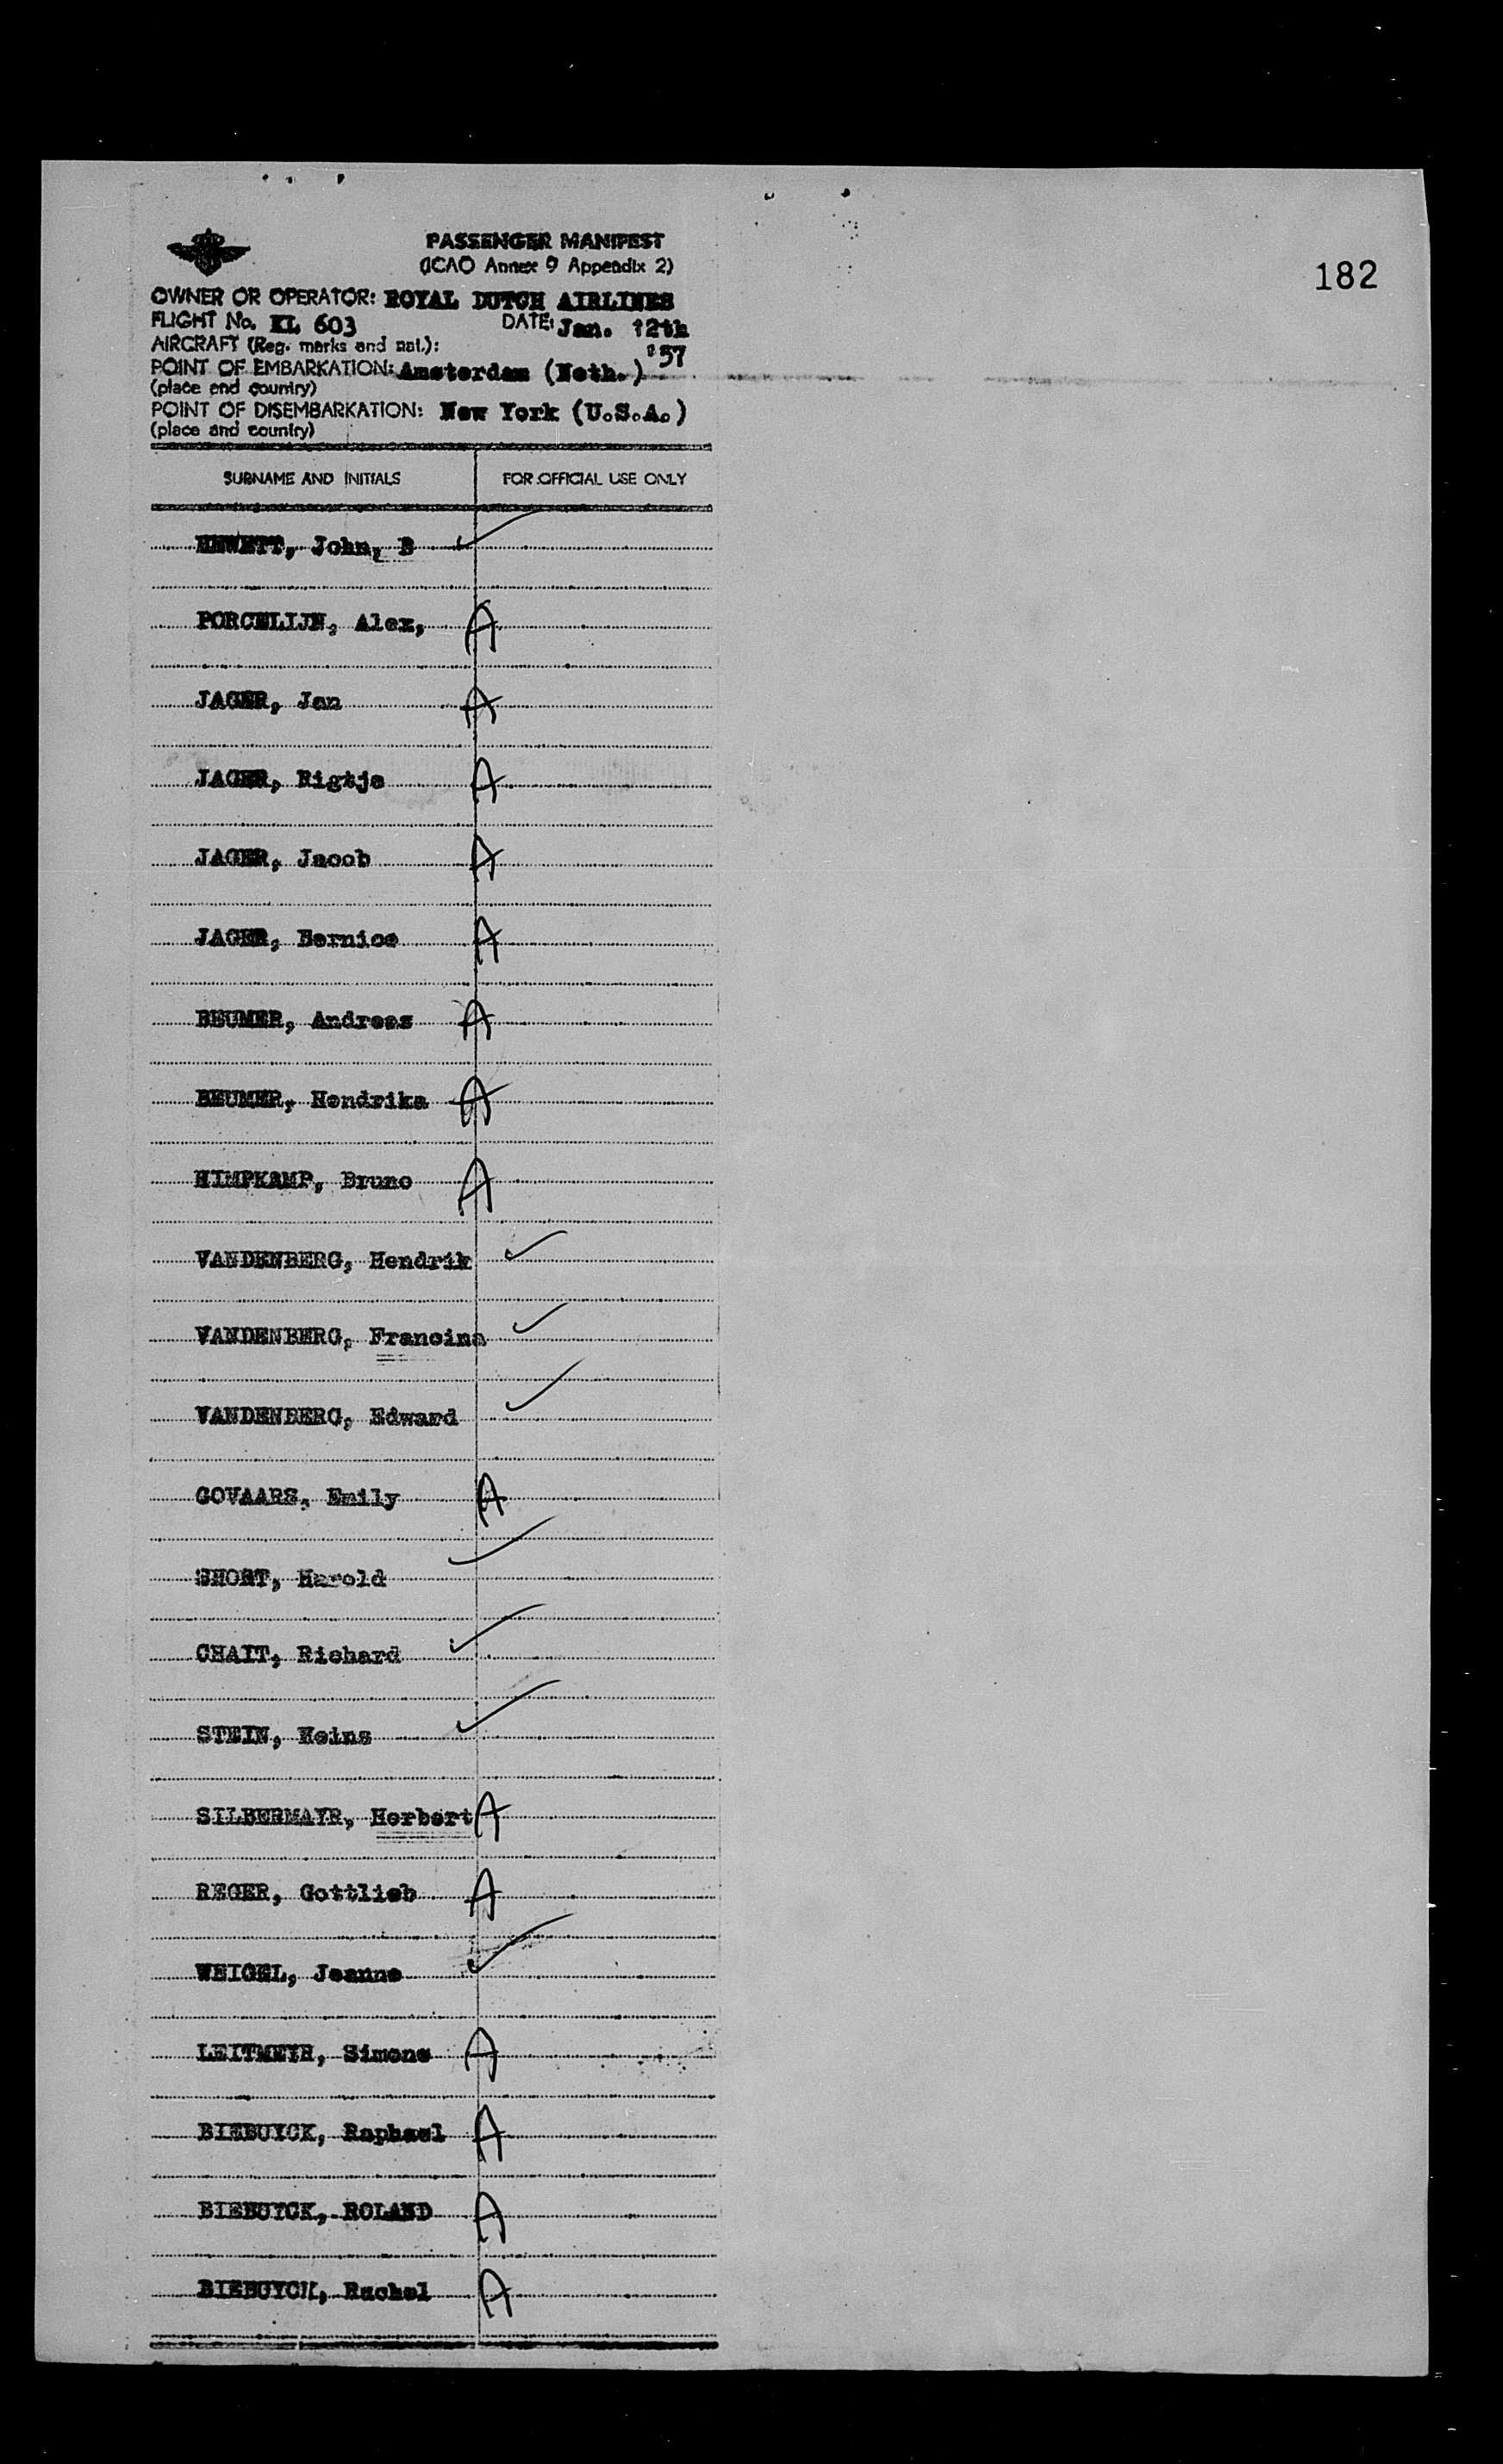 182
PASSENGER MANIFEST
(ICAO Annex 9 Appendix 2)
OWNER OR OPERATOR: ROYAL DUTCH AIRLINES
FLIGHT No. KL 603 DATE: Jan. 12th
'57
AIRCRAFT (Reg. marks and nat.):
POINT OF EMBARKATION: Amsterdam (Neth.)
(place and country)
POINT OF DISEMBARKATION: New York (U.S.A.)
(place and country)
SURNAME AND INITIALS FOR OFFICIAL USE ONLY
John, B ✓
PORCELIJN, Alex, A
JAGER, Jan A
JAGER, Rigtje A
JAGER, Jacob A
JAGER, Bernice A
BEUMER, Andreas A
BEUMER, Hendrika A
HIMPKAMP, Bruno A
VANDENBERG, Hendrik ✓
VANDENBERG, Francina ✓
VANDENBERG, Edward ✓
GOVAARS, Emily A
SHORT, Harold ✓
CHAIT, Richard ✓
STEIN, Heinz ✓
SILBERMAYR, Herbert A
REGER, Gottlieb A
WEIGEL, Jeanne ✓
LEITMEYR, Simone A
BIEBUYCK, Raphael A
BIEBUYCK, ROLAND A
BIEBUYCK, Rachel A